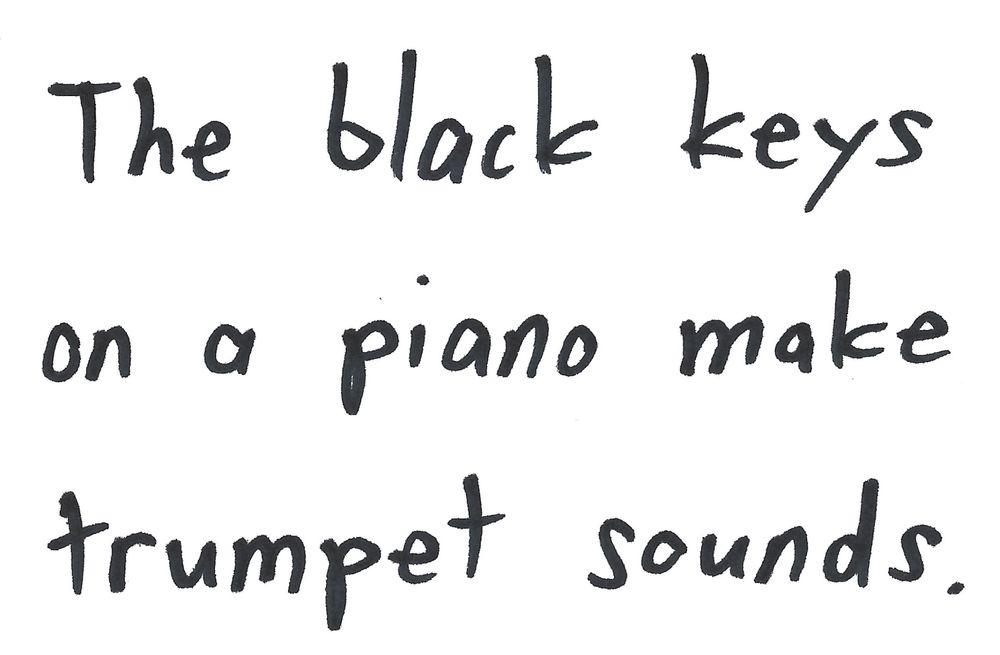 The black keys
on a piano make
trumpet sounds.